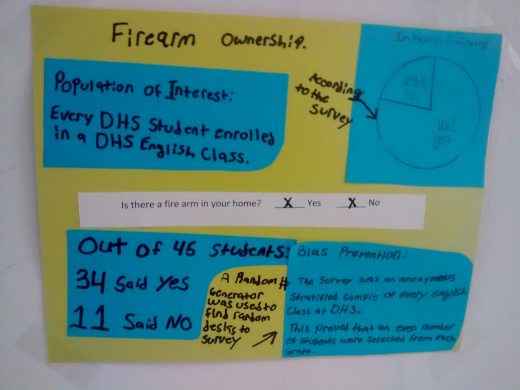 Firearm Ownership.
In home firearms
Population of Interest:
Every DHS Student enrolled
in a DHS English Class.
According
to the
Survey
24%
no
yes
Is there a fire arm in your home? X Yes X No
Out of 45 students:
34 Said Yes
11 Said NO
A Random #
Generator
was used to
find random
desks to
survey
Bias Prevention:
The survey was an anonymous
stratified sample of every english
Class at DHS.
This proved that an even number
of students were selected from each
Grade.